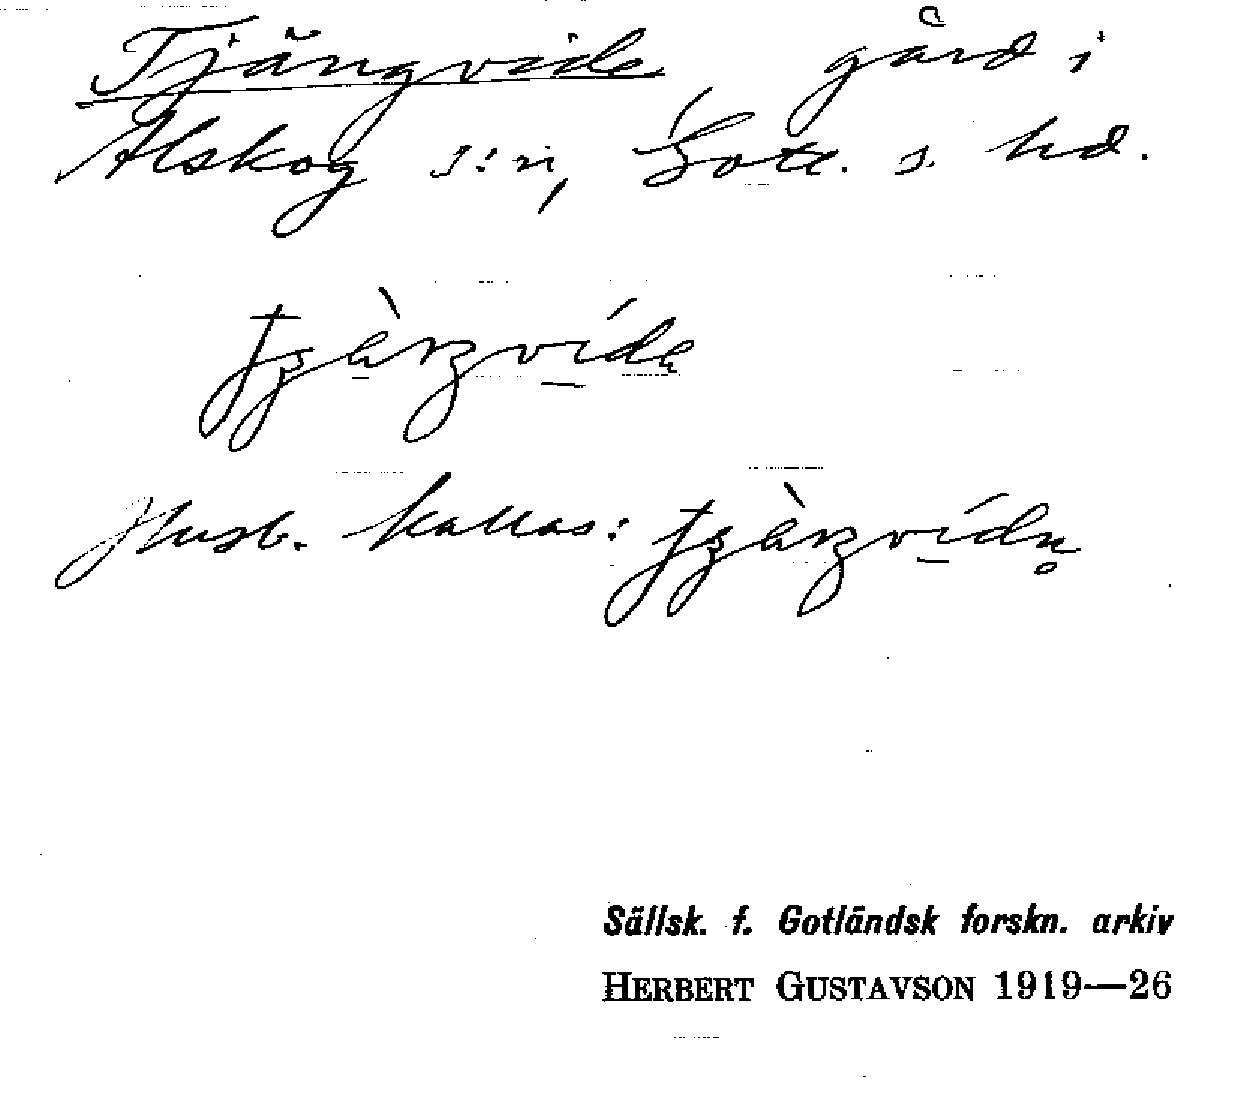 Tjängvide gård i
Alskog s:n, Gotl. s. hd.
Husb. kallas:
Sällsk. f. Gotländsk forskn. arkiv
HERBERT GUSTAVSON 1919—26